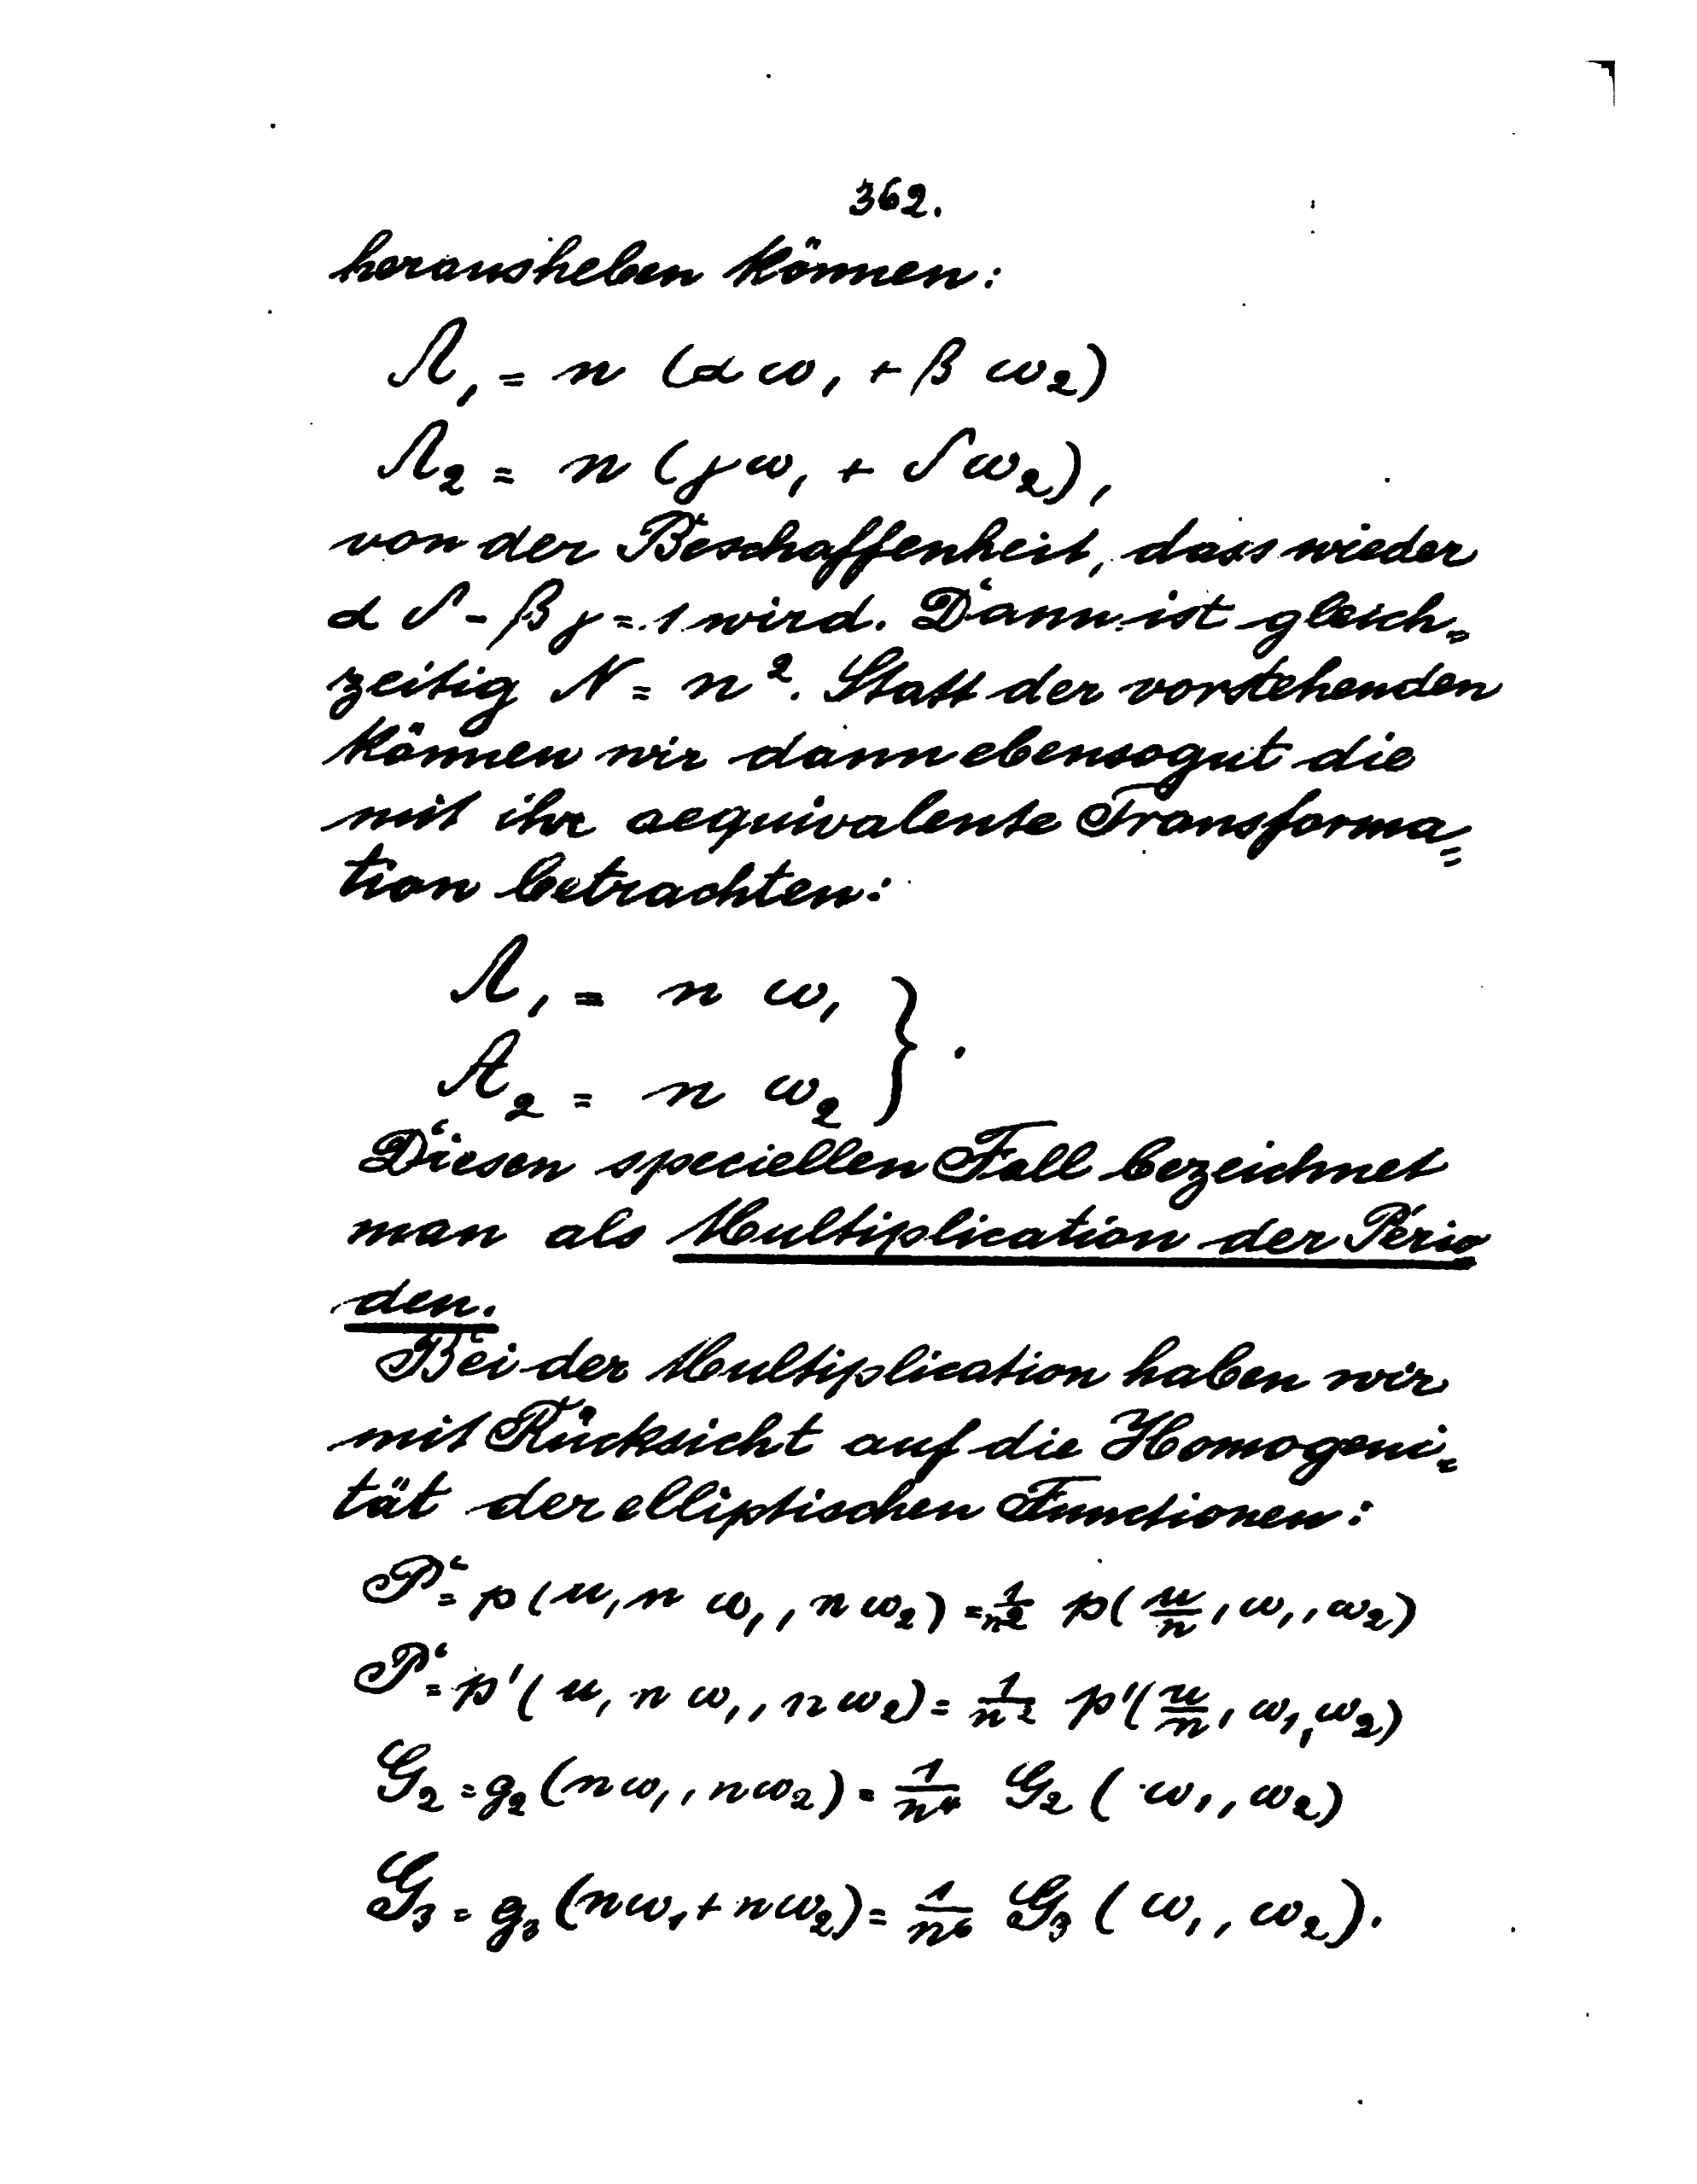 362.
herausheben können:
Λ₁ = n (αω₁ + βω₂)
Λ₂ = n (γω₁ + δω₂),
von der Beschaffenheit, dass wieder
αδ - βγ = 1 wird. Dann ist gleich=
zeitig N = n². Statt der vorstehenden
können wir dann ebensogut die
mit ihr aequivalente Transforma=
tion betrachten:
Λ₁ = n ω₁
Λ₂ = n ω₂ } .
Diesen speciellen Fall bezeichnet
man als Multiplication der Perio
den.
Bei der Multiplication haben wir
mit Rücksicht auf die Homogeni=
tät der elliptischen Functionen:
P = p(u, n ω₁, n ω₂) = 1/n² p(u/n, ω₁, ω₂)
P' = p'(u, n ω₁, n ω₂) = 1/n² p'(u/n, ω₁, ω₂)
G₂ = g₂(nω₁, nω₂) = 1/n⁴ G₂(ω₁, ω₂)
G₃ = g₃(nω₁ + nω₂) = 1/n⁶ G₃(ω₁, ω₂).